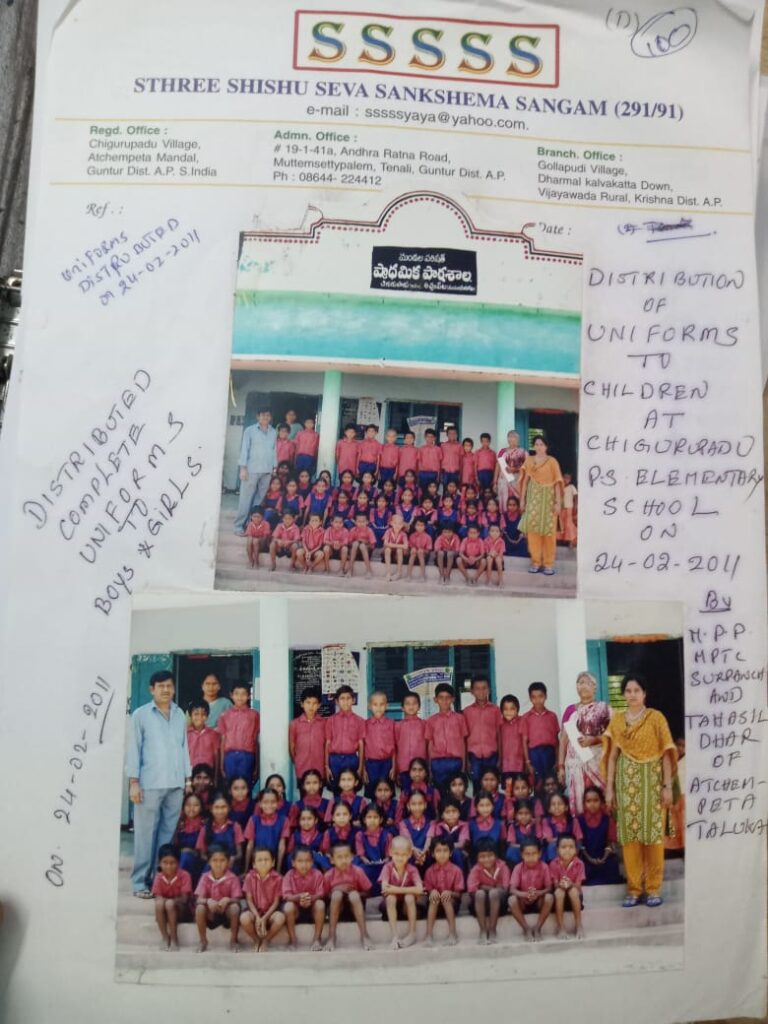 (D) 100
SSSSS
STHREE SHISHU SEVA SANKSHEMA SANGAM (291/91)
e-mail : sssssyaya@yahoo.com.
Regd. Office :
Chigurupadu Village,
Atchempeta Mandal,
Guntur Dist. A.P. S.India
Admn. Office :
# 19-1-41a, Andhra Ratna Road,
Muttemsettypalem, Tenali, Guntur Dist. A.P.
Ph : 08644- 224412
Branch. Office :
Gollapudi Village,
Dharmal kalvakatta Down,
Vijayawada Rural, Krishna Dist. A.P.
Ref. :
Date :
UNIFORMS
DISTRUBUTED
on 24-02-2011
మండల పరిషత్
ప్రాథమిక పాఠశాల
DISTRIBUTION
OF
UNIFORMS
TO
CHILDREN
AT
CHIGURUPADU
P.S. ELEMENTARY
SCHOOL
ON
24-02-2011
By
M.P.P.
MPTC
SURPANCH
AND
TAHASIL
DHAR
OF
ATCHEM-
PETA
TALUKA
DISTRIBUTED
COMPLETE
UNIFORMS
TO
BOYS & GIRLS.
ON. 24-02-2011